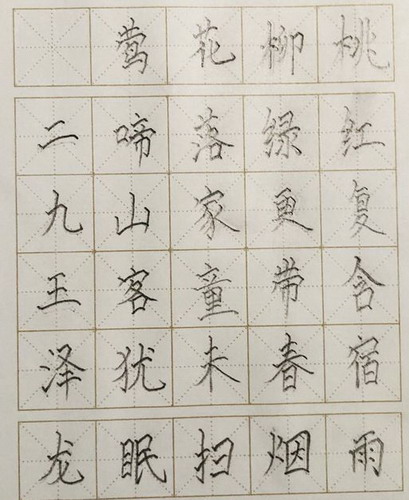 桃红复含宿雨
柳绿更带春烟
花落家童未扫
莺啼山客犹眠
二九王泽龙